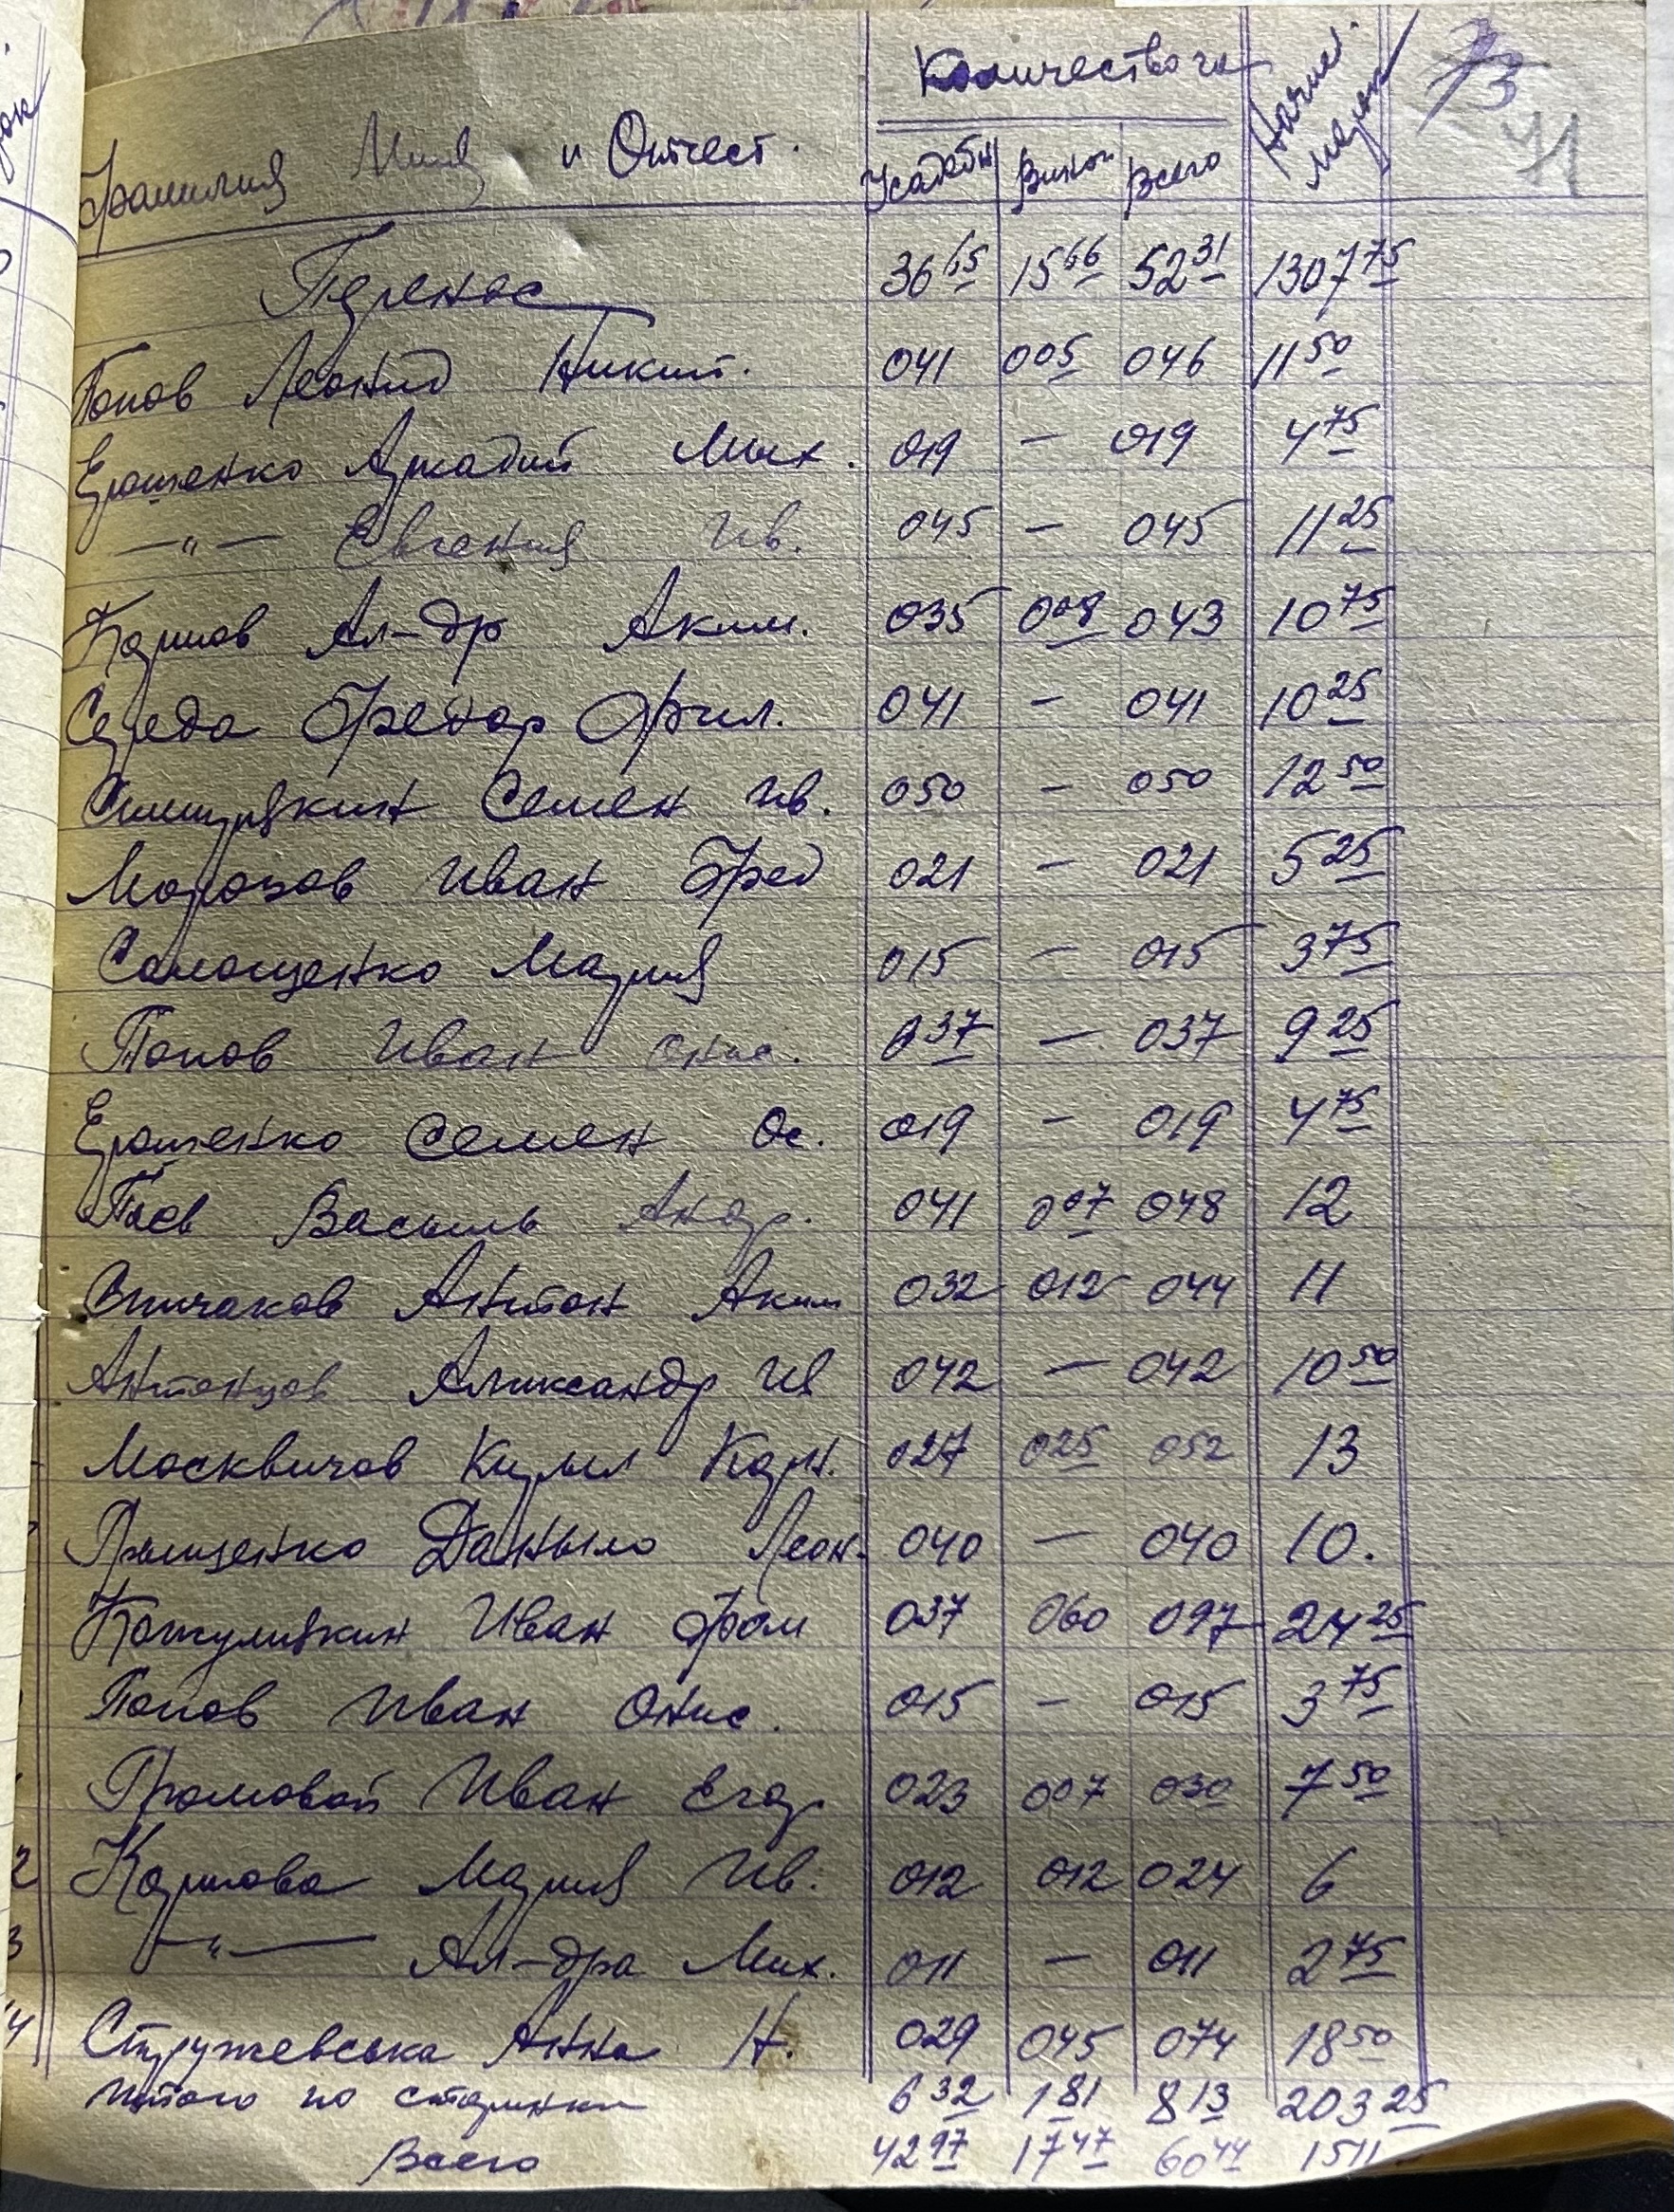 73
41
Фамилия Имя и Отчест. Количество га Начис.
Усадебн Виног Всего
Перенос 36 65 15 66 52 31 1307 75
Попов Леонид Никит. 041 005 046 11 50
Ерошенко Аркадий Мих. 019 — 019 4 75
—"— Евгения Ив. 045 — 045 11 25
Карпов Ал-др Аким. 035 008 043 10 75
Середа Федор Фил. 041 — 041 10 25
Семен Ив. 050 — 050 12 50
Морозов Иван Фед 021 — 021 5 25
Мария 015 — 015 3 75
Попов Иван Онис. 037 — 037 9 25
Ерошенко Семен Ос. 019 — 019 4 75
Василь Андр. 041 007 048 12
Спичаков Антон Аким 032 012 044 11
Антонцов Александр Ив 042 — 042 10 50
Москвичов Кирил Карн. 027 025 052 13
Даныло Леон. 040 — 040 10.
Иван Фом 037 060 097 24 25
Попов Иван Онис. 015 — 015 3 75
Громовой Иван Егор. 023 007 030 7 50
Карпова Мария Ив. 012 012 024 6
—"— Ал-дра Мих. 011 — 011 2 75
Стружевська Анна Н. 029 045 074 18 50
Итого по старинки 6 32 1 81 8 13 203 25
Всего 42 97 17 47 60 44 1511